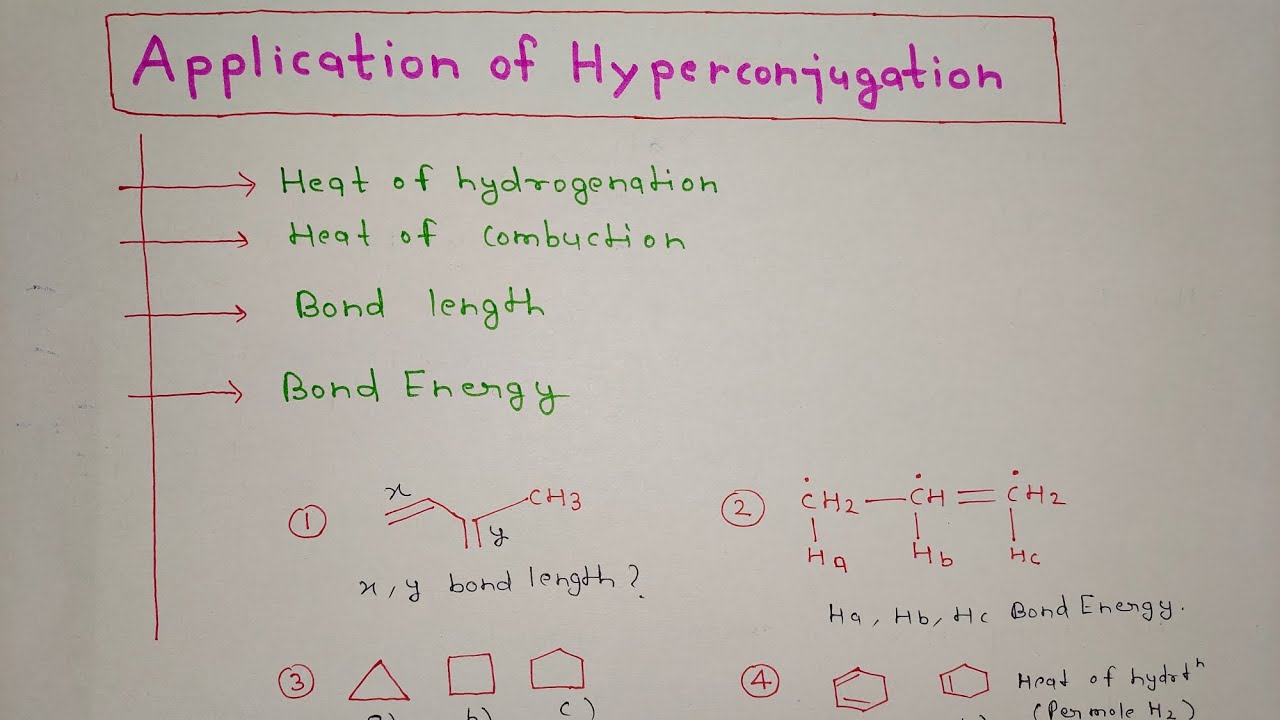 Application of Hyperconjugation
Heat of hydrogenation
Heat of combuction
Bond length
Bond Energy
① x CH3
y
x, y bond length?
② ĊH2 — ĊH = ĊH2
Ha Hb Hc
Ha, Hb, Hc Bond Energy.
③
b) c)
④ Heat of hydrotⁿ
(Per mole H2)